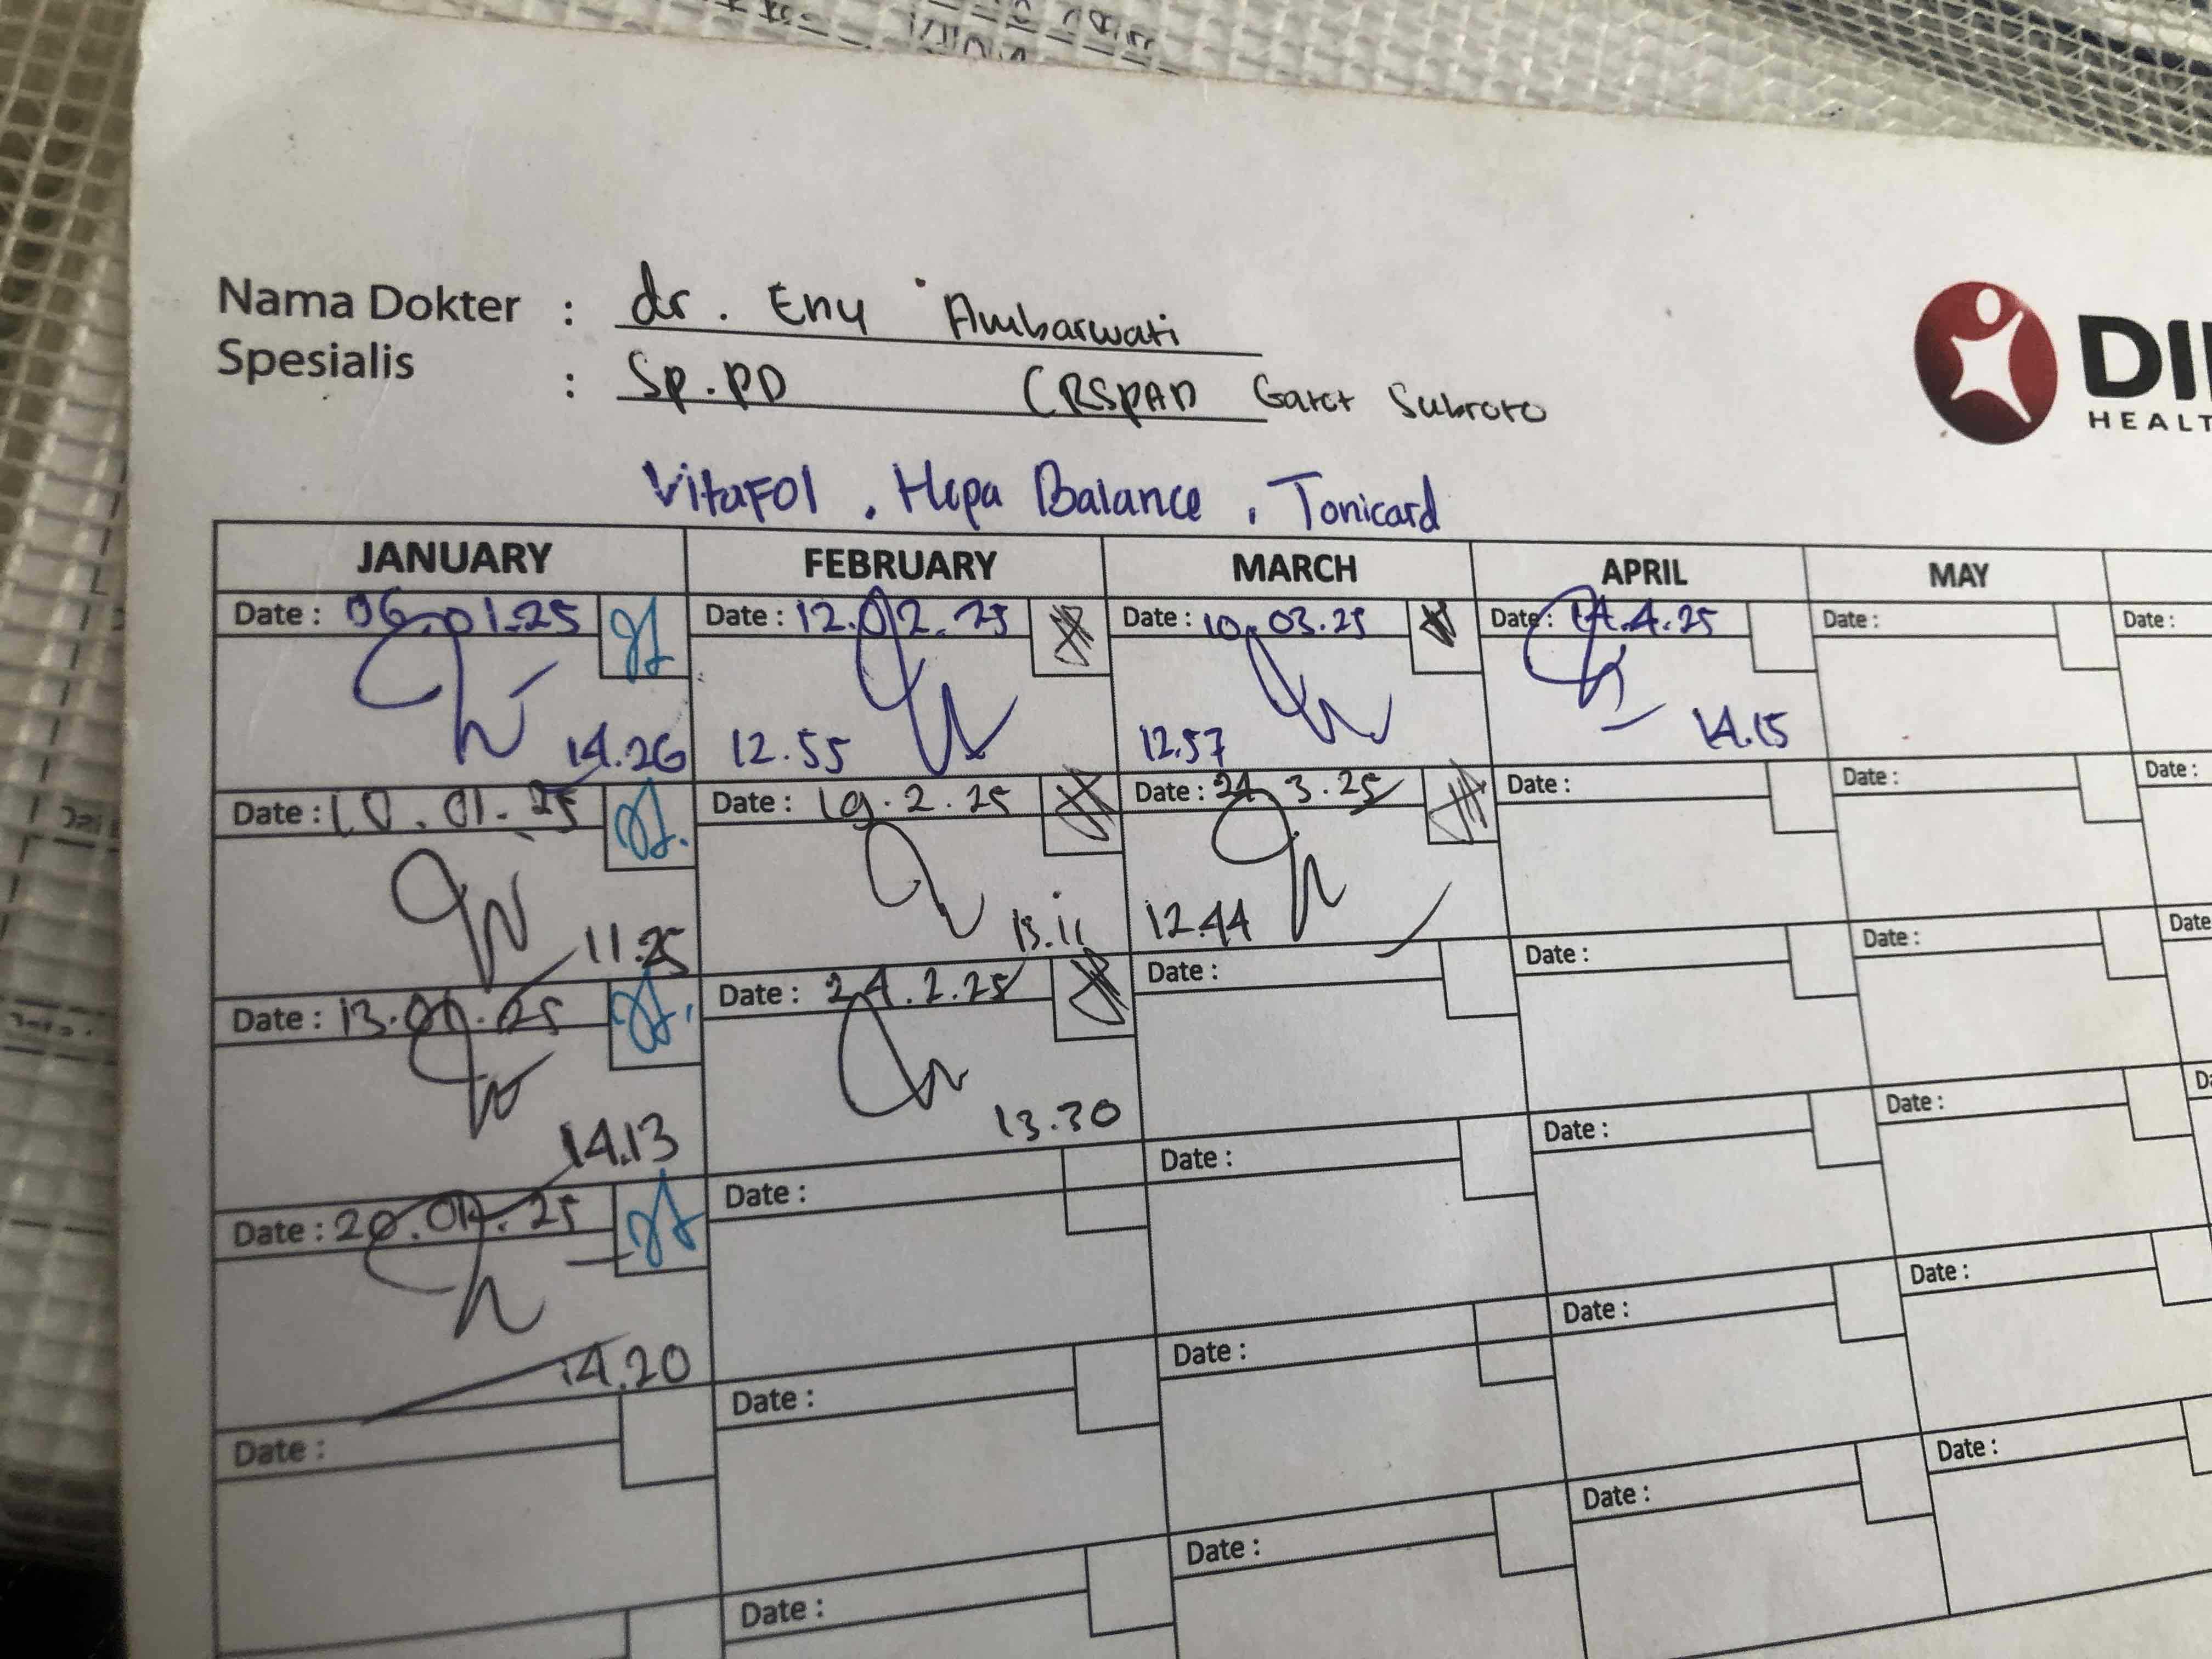 Nama Dokter : dr. Eny Ambarwati
Spesialis : Sp.PD (RSPAD Gatot Subroto
DI
HEALT
VitaFOl . Hepa Balance , Tonicard
JANUARY FEBRUARY MARCH APRIL MAY
Date : 06.01.25 Date : 12.02.25 Date : 10.03.25 Date : 14.4.25 Date : Date :
14.26 12.55 12.57 14.15
Date : 10.01.25 Date : 19.2.25 Date : 24.3.25 Date : Date : Date :
11.25 13.11 12.44
Date : 13.01.25 Date : 24.2.25 Date : Date : Date : Date
14.13 13.30
Date : 20.01.25 Date : Date : Date : Date : Da
14.20
Date : Date : Date : Date : Date :
Date : Date : Date : Date :